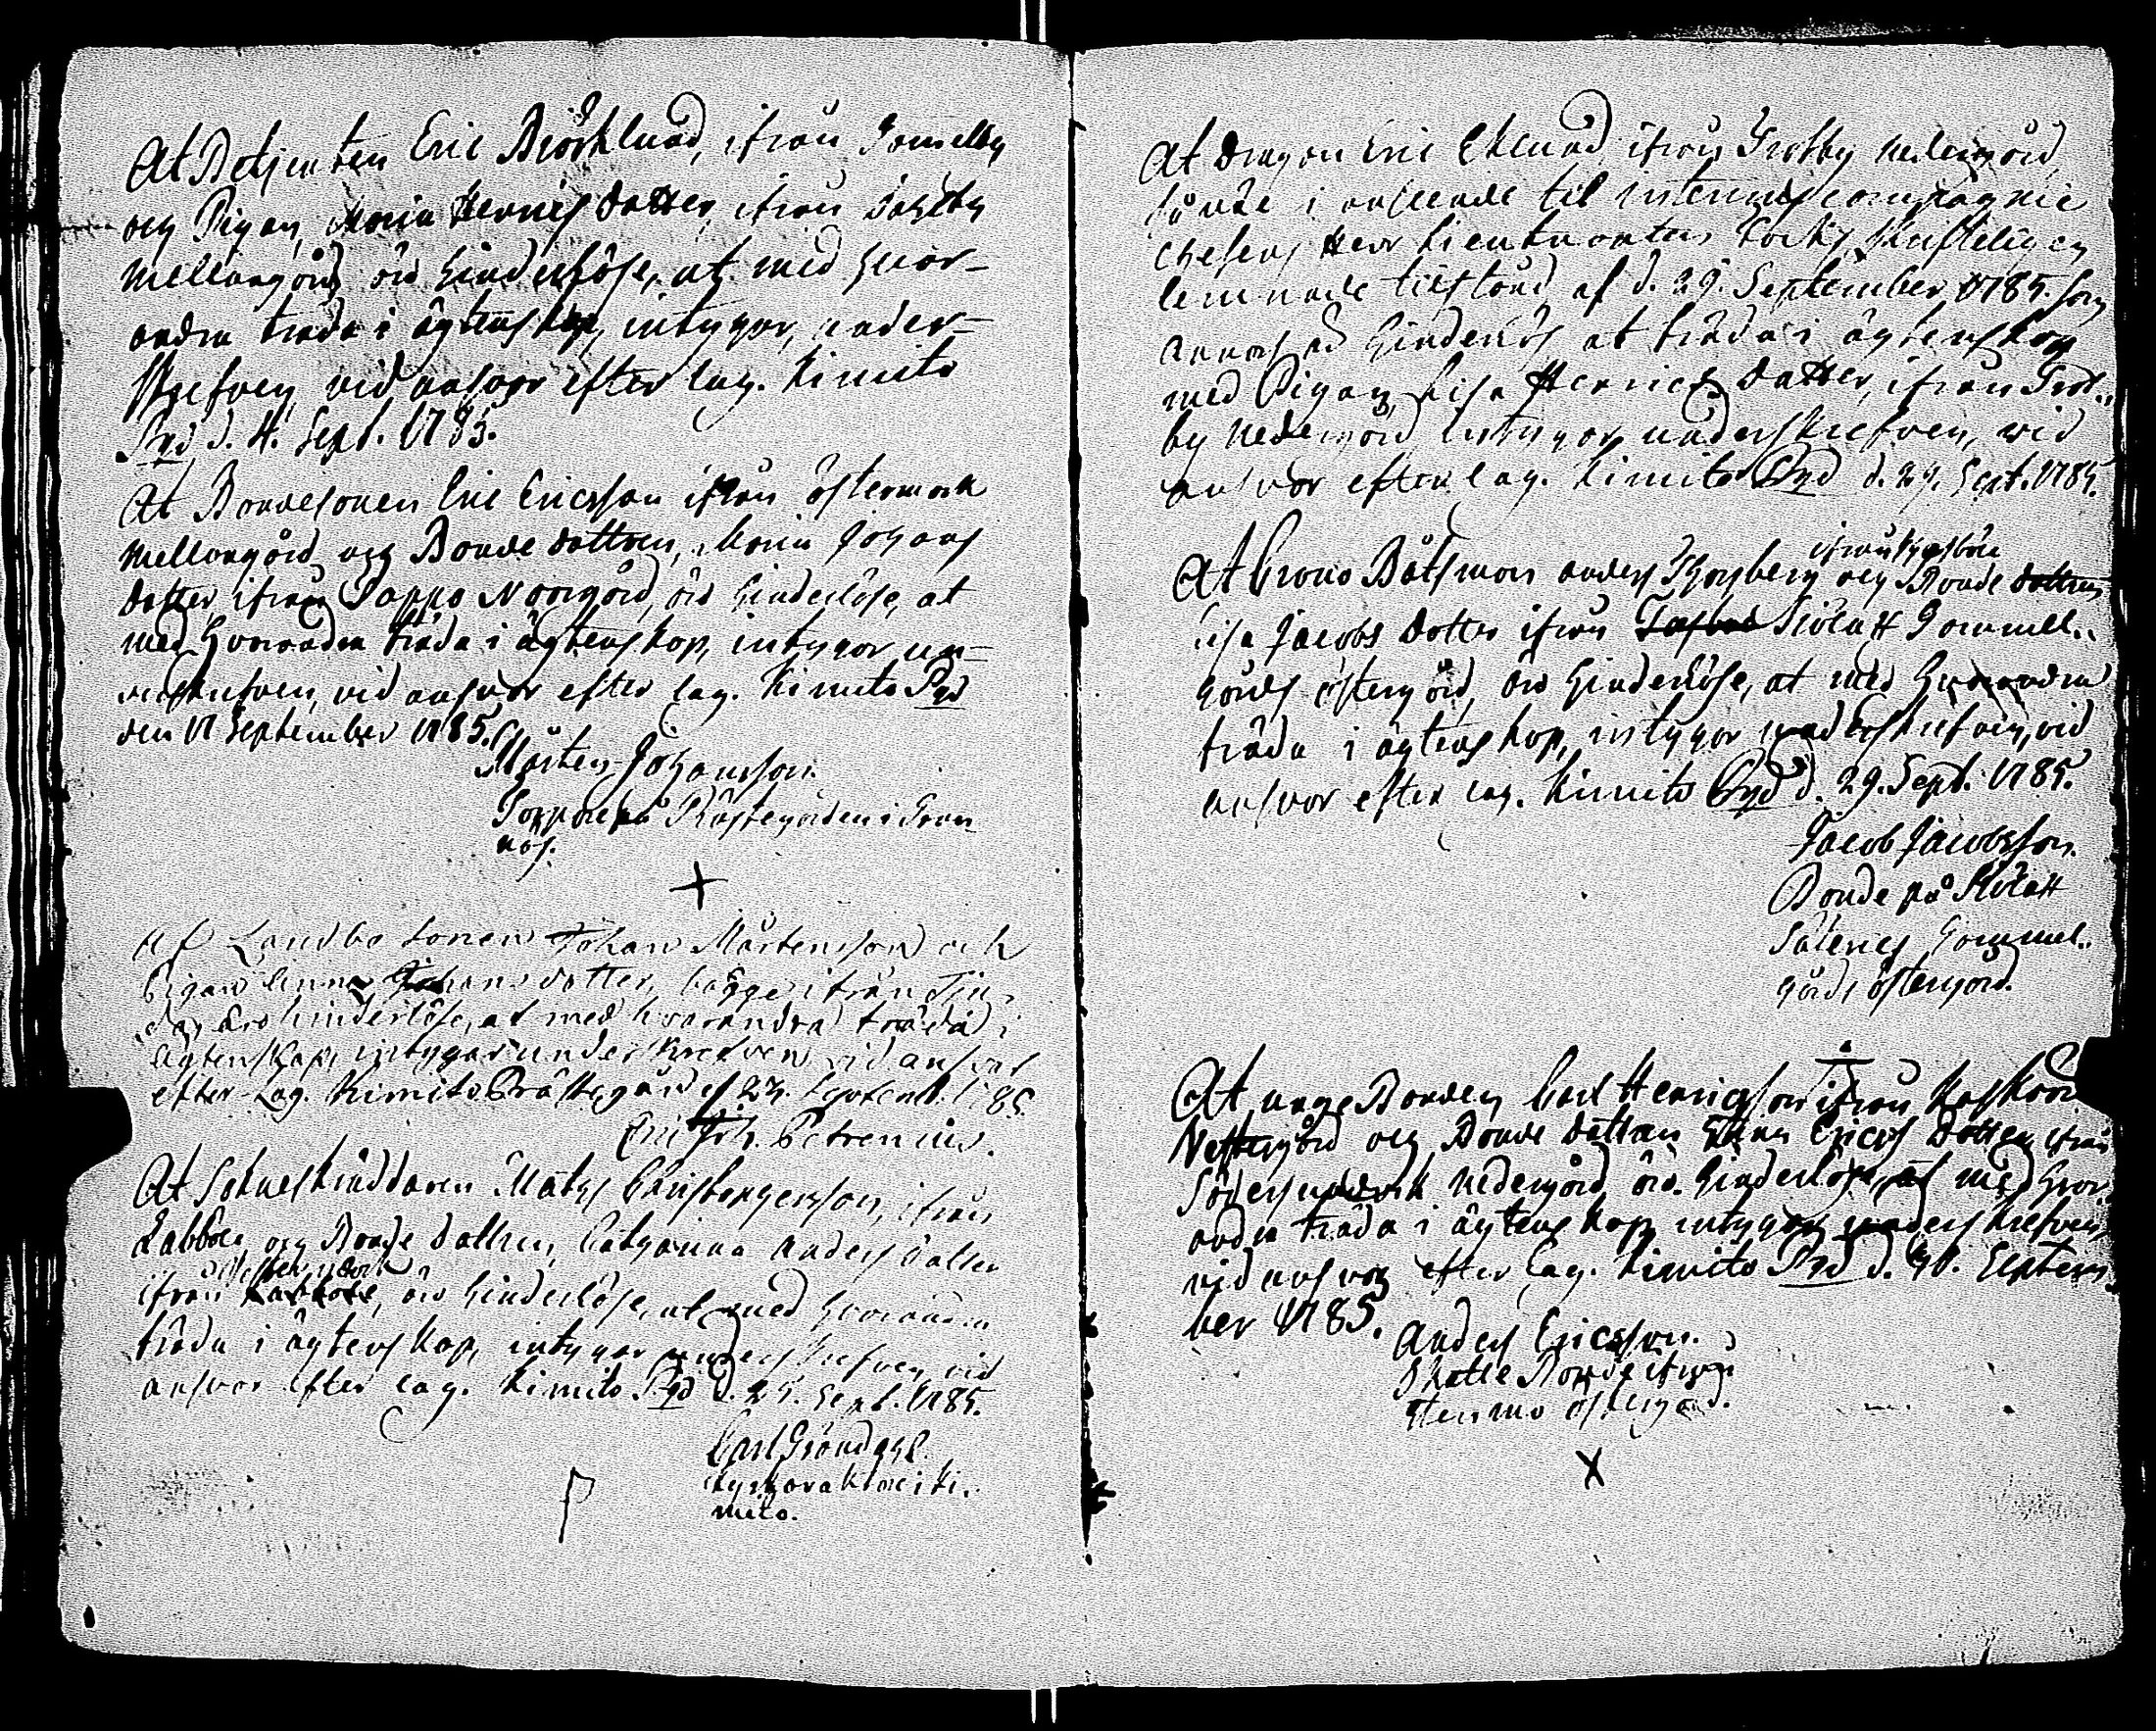 At Betjenten Eric Biörklund, ifrån Gamelby
och Pigan, Maria Henrics dotter, ifrån
mellangård äro hinderlöse, at med hvar-
andra träda i ägtenskap, intygar, under-
skrefven, vid ansvar efter lag. Kimito
Pgd d. 4. Sept. 1785.
At Bondesonen Eric Ericsson ifrån östermark
mellangård och Bonde dottren, Maria Johans
dotter, ifrån Pappo Norrgård, äro hinderlöse, at
med hvarandra träda i ägtenskap, intygar un-
derskrefven, vid ansvar efter lag. Kimito Pgd
den 17 September 1785.
Mårten Johansson.
på Prästegården i
At Landbo sonen Johan Mårtensson och
Pigan Anna Johans dotter, bägge ifrån
äro hinderlöse, at med hvarandra träda i
ägtenskap, intygar underskrefven vid ansvar
efter Lag. Kimito Prästegård d 23. Septemb. 1785.
Petrenius.
At Sokneskräddaren Mats Christophersson, ifrån
Labböle och Bonde dottren, Catharina Anders dotter
ifrån Labböle, äro hinderlöse, at med hvarandra
träda i ägtenskap, intygar underskrefven vid
ansvar efter lag. Kimito Pgd d. 25. Sept. 1785.
Carl Gröndahl
Kyrkovaktare i Ki-
mito.
At Dragon Eric Eklund, ifrån Trotby nedergård,
i anseende til interims compagnie
chefens Herr Lieutnanten skrifteligen
lemnade tilstånd af d. 29. September 1785. som
annars är hinderlös at träda i ägtenskap
med Pigan, Lisa Henrics dotter, ifrån Trot-
by nedergård intygar underskrefven, vid
ansvar efter lag. Kimito Pgd d. 29. Sept. 1785.
ifrån
At Crono Båtsman Anders och Bonde dottren
Lisa Jacobs dotter ifrån Skölatt Gammel-
gårds östergård, äro hinderlöse, at med hvarandra
träda i ägtenskap, intygar underskrefven, vid
ansvar efter lag. Kimito Pgd d. 29. Sept. 1785.
Jacob Jacobsson.
Bonde på Skölatt
Säteries Gammel-
gårds östergård.
At unge Bonden Carl Henricsson ifrån
Vestergård och Bonde dottren Erics dotter ifrån
nedergård äro hinderlöse, at med hvar-
andra träda i ägtenskap, intygar underskrefven
vid ansvar efter lag. Kimito Pgd d. 30. Septem
ber 1785.
Anders Ericsson.
Skatte Bonde ifrån
östergård.